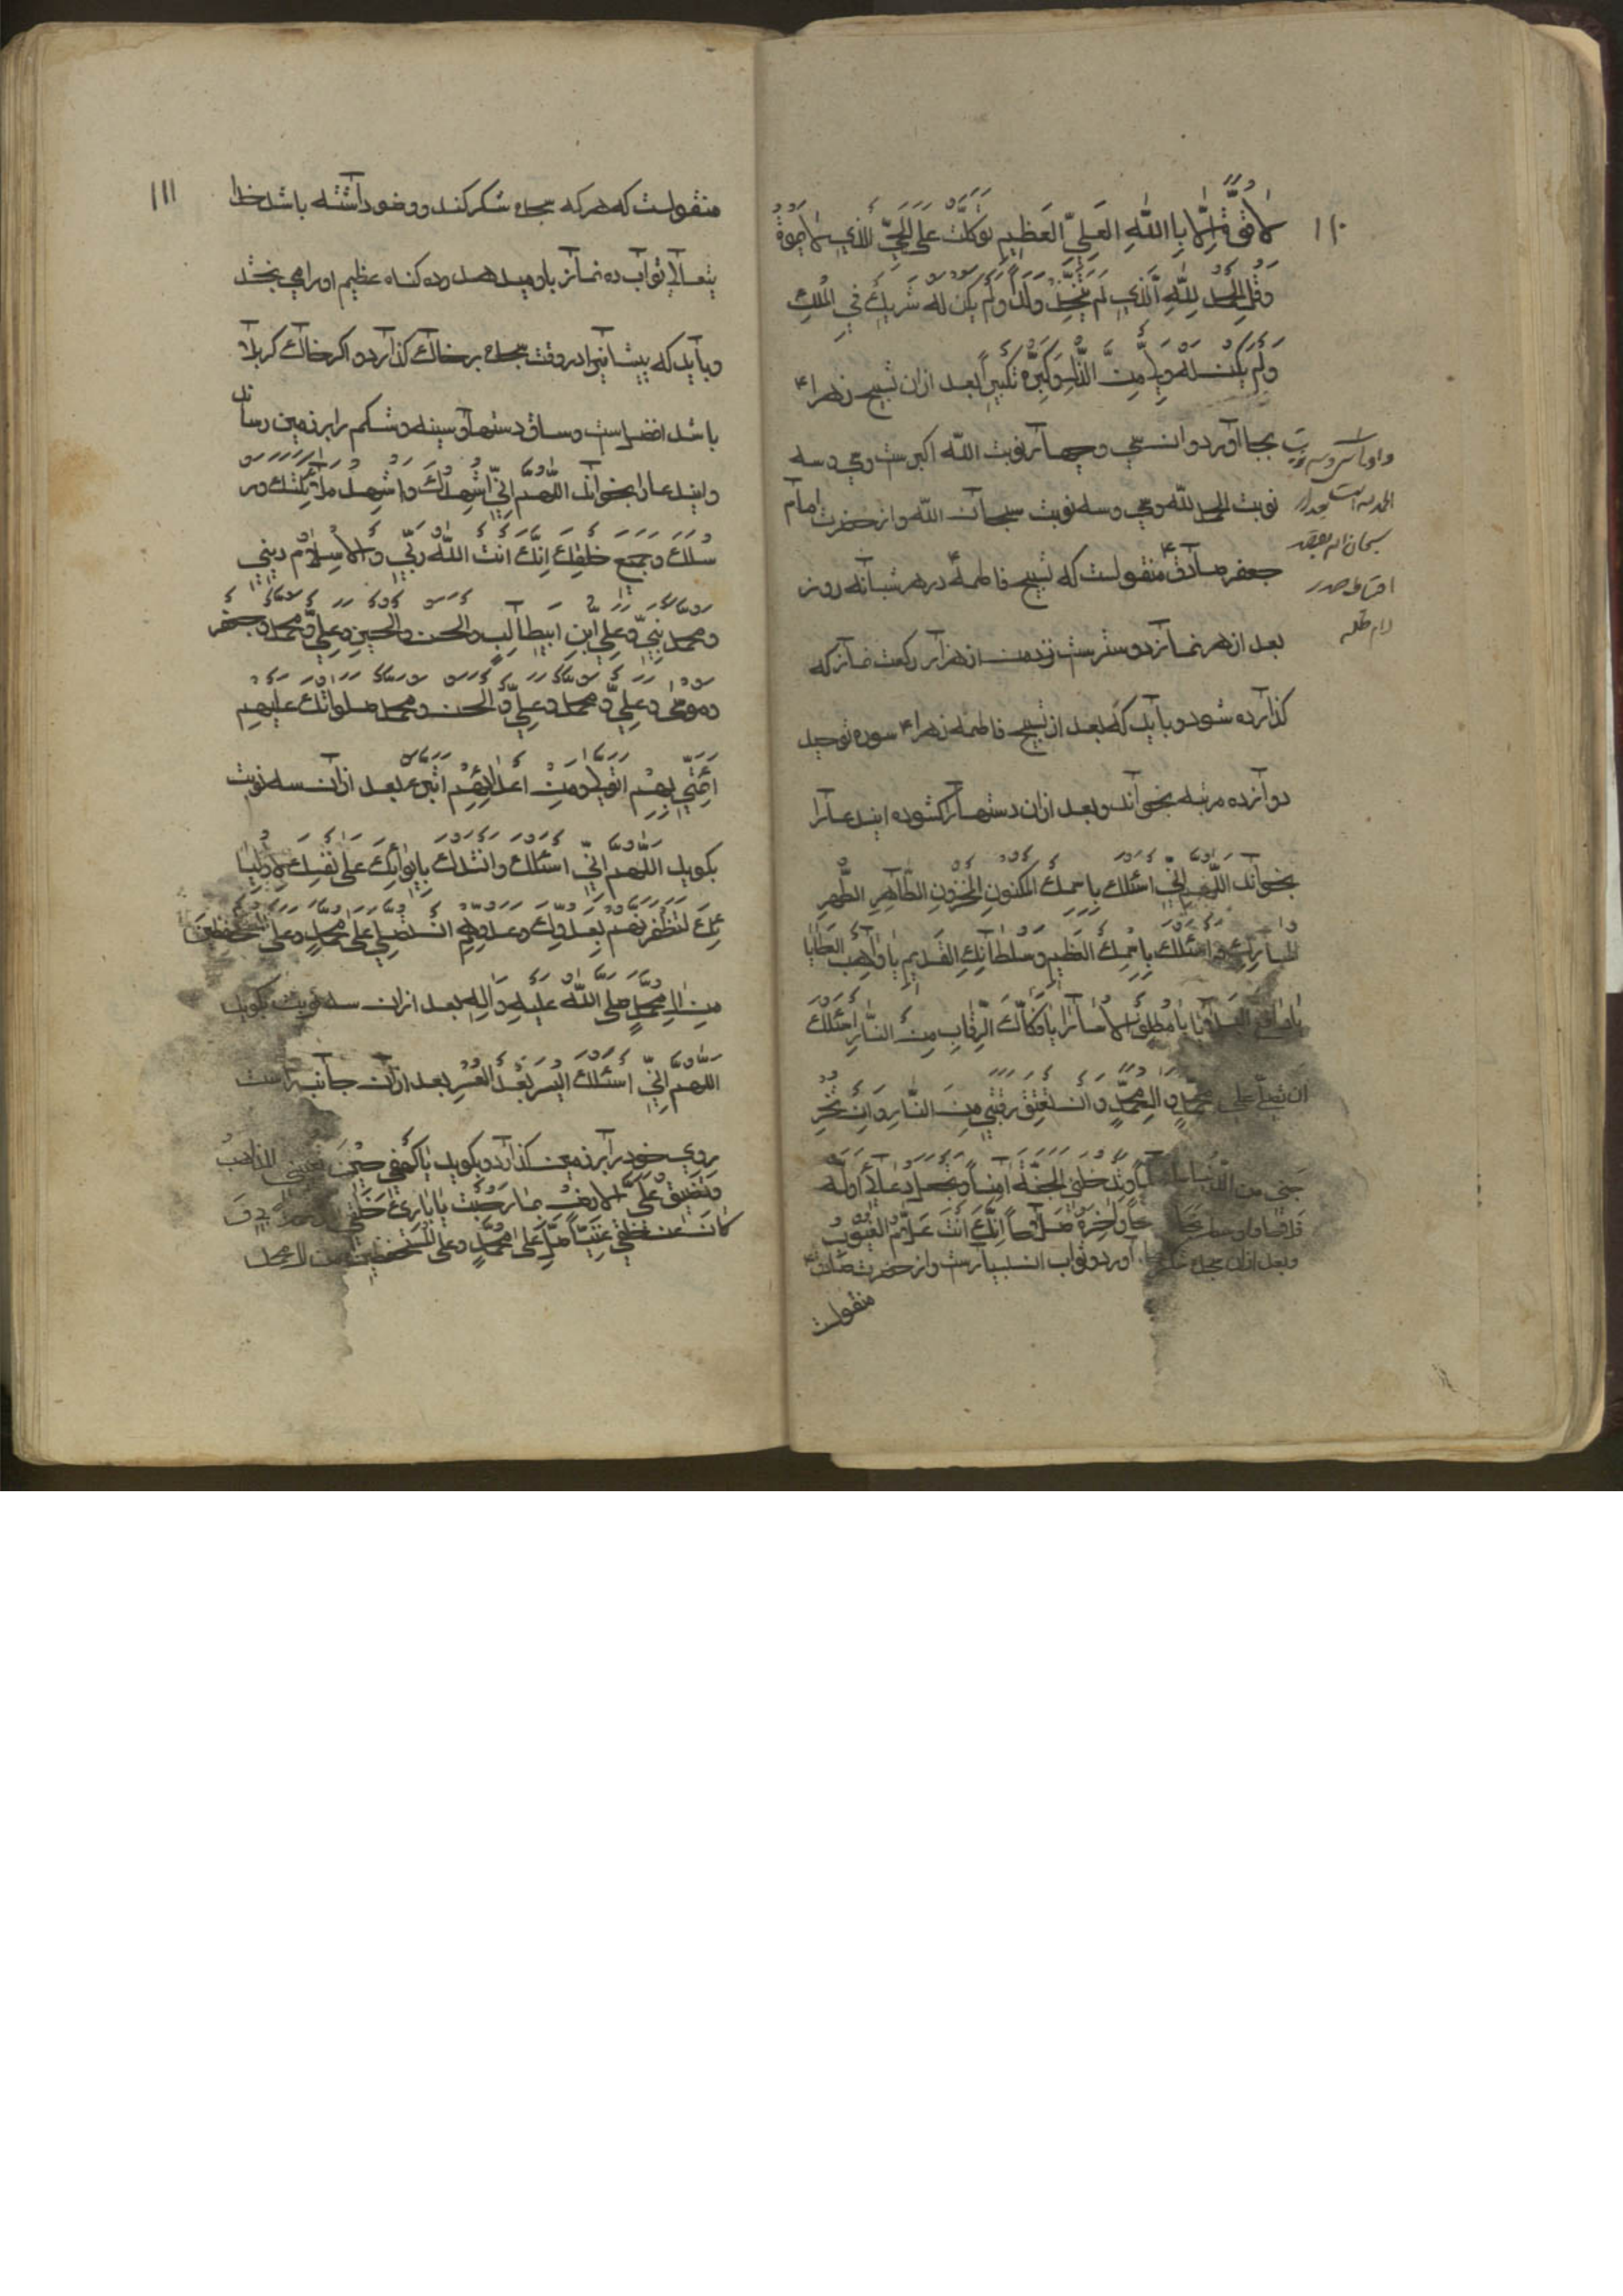 ۱۱۰
لا قوة الا با الله العلي العظيم توكلت على الحي الذي لا يموت
وقل الحمد لله الذي لم يتخذ ولدا ولم يكن له شريك في الملك
ولم يكن له ولي من الذل وكبره تكبيرا بعد ازان تسبيح زهرا ع
بجا اورد و ان سي و چهار نوبت الله اكبرست و سي و سه
نوبت الحمد لله و سي و سه نوبت سبحان الله و از حضرت امام
جعفر صادق ع منقولست كه تسبيح فاطمه در هر شبانه روز
بعد از هر نماز دوسترست نزد من از هزار ركعت نماز كه
گذارده شود و بايد كه بعد از تسبيح فاطمه زهرا ع سوره توحيد
دوازده مرتبه بخواند و بعد ازان دستها را گشوده ايندعا را
بخواند اللهم اني اسئلك باسمك المكنون المخزون الطاهر الطهر
المبارك و اسئلك باسمك العظيم و سلطانك القديم يا واهب العطايا
يا مطلق الاسارا يا فكاك الرقاب من النار اسئلك
ان تصلي على محمد و ال محمد و ان تعتق رقبتي من النار و ان تخر
جني من الدنيا و تدخلني الجنة امنا و تجعل دعائي اوله
فلاحا و اخره صلاحا انك انت علام الغيوب
و بعد ازان سجده شكر اورد و ثواب ان بسيارست و از حضرت صادق ع
منقولست
الحمد لله
سبحان الله
۱۱۱
منقولست كه هر كه سجده شكر كند و وضو داشته باشد خدا
يتعالى ثواب ده نماز باو ميدهد و ده گناه عظيم او را مي بخشد
و بايد كه پيشاني را در وقت سجده بر خاك گذارد و اگر خاك كربلا
باشد افضل است و ساق دستها و سينه و شكم را بر زمين رساند
و ايندعا را بخواند اللهم اني اشهدك و اشهد ملائكتك و ر
سلك و جميع خلقك انك انت الله ربي و الاسلام ديني
و محمد نبيي و علي ابن ابيطالب و الحسن و الحسين و علي و محمد و جعفر
و موسى و علي و محمد و علي و الحسن و محمد صلواتك عليهم
ائمتي بهم اتولى و من اعدائهم اتبرء بعد ازان سه نوبت
بگويد اللهم اني اسئلك و انشدك بايوائك على نفسك لاوليا
ئك لتظفرنهم بعدوك و عدوهم ان تصلي على محمد و على المستحفظين
من ال محمد صلى الله عليه و اله بعد ازان سه نوبت بگويد
اللهم اني اسئلك اليسر بعد العسر بعد ازان جانب راست
روي خود را بر زمين گذارد و بگويد يا كهفي حين تعييني المذاهب
و تضيق علي الارض بما رحبت يا بارئ خلقي
كان عن خلقي غنيا صل على محمد و على المستحفظين من ال محمد